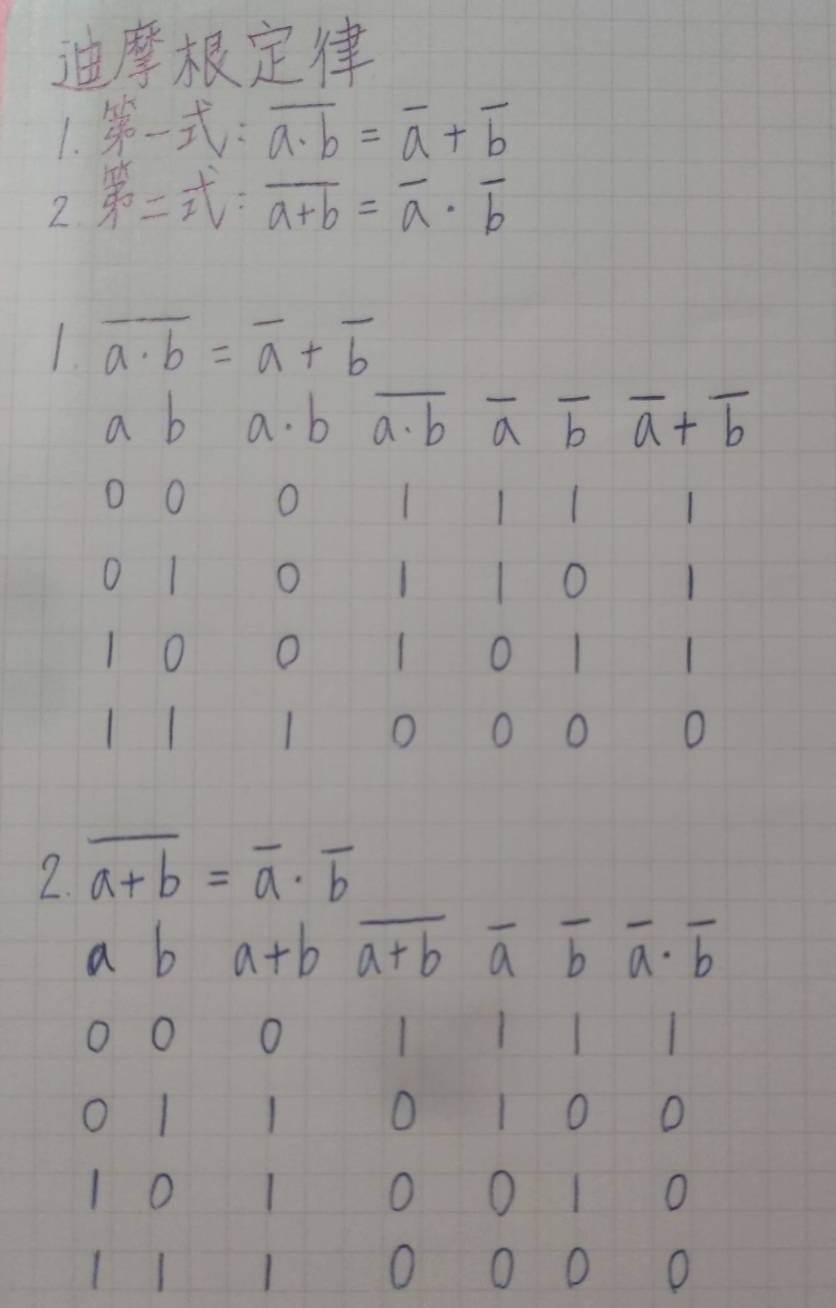 迪摩根定律
1. 第一式: a̅·̅b̅ = a̅ + b̅
2. 第二式: a̅+̅b̅ = a̅ · b̅
1. a̅·̅b̅ = a̅ + b̅
a b a·b a̅·̅b̅ a̅ b̅ a̅ + b̅
0 0 0 1 1 1 1
0 1 0 1 1 0 1
1 0 0 1 0 1 1
1 1 1 0 0 0 0
2. a̅+̅b̅ = a̅ · b̅
a b a+b a̅+̅b̅ a̅ b̅ a̅ · b̅
0 0 0 1 1 1 1
0 1 1 0 1 0 0
1 0 1 0 0 1 0
1 1 1 0 0 0 0